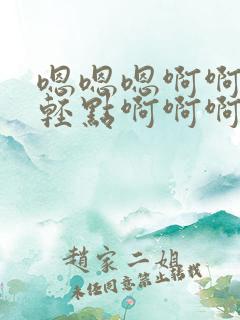 嗯嗯嗯啊啊
輕點啊啊啊
趙家二姐
未任同意禁止轉載